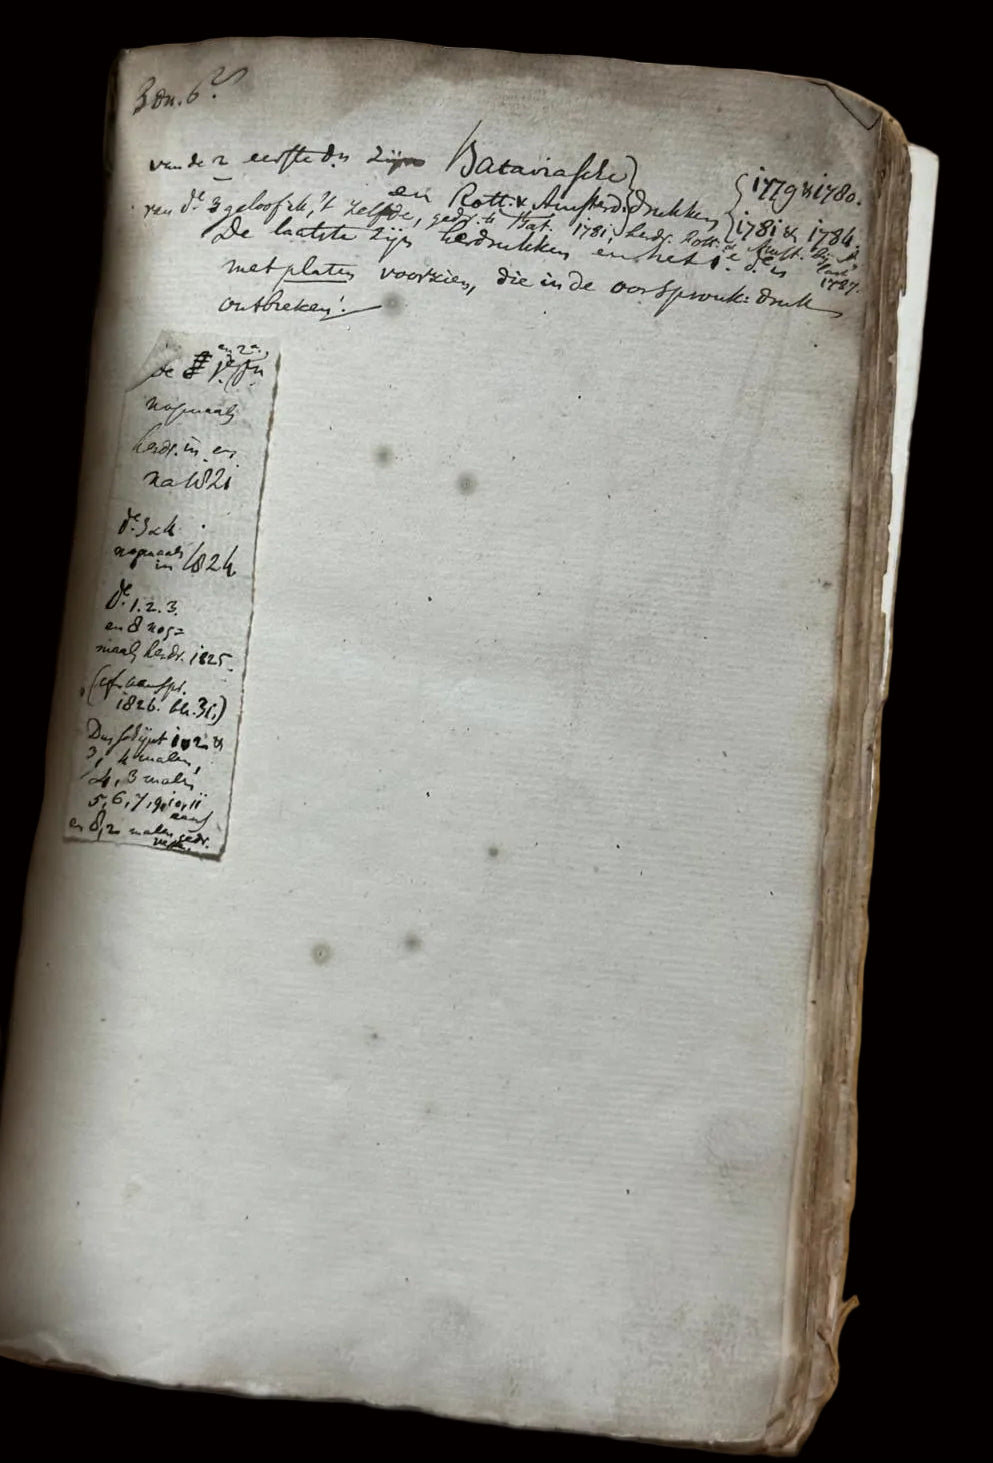 3 dn. 6
van de 2 eerste dn zijn Bataviasche } { 1779 & 1780.
en Rott. & Amsterd. } drukken } 1781 & 1784.
van dl. 3 geloof ik, 't zelfde, gedr. te Bat. 1781, herdr. Rott. & Amst. 1787.
De laatste zijn herdrukken en het 1e dn
met platen voorzien, die in de oorspronk: druk
ontbreken!
en 2e,
de 1e dn
nogmaals
herdr. in en
na 1821
dl. 3 & 4
nogmaals
in 1824
dl. 1. 2. 3.
en 8 nog=
maals herdr. 1825.
(cf.
1826. bl. 31.)
Dus schijnt 1 2 &
3, 4 malen,
4, 3 malen
5, 6, 7, 9, 10, 11
en 8, 2 malen gedr.